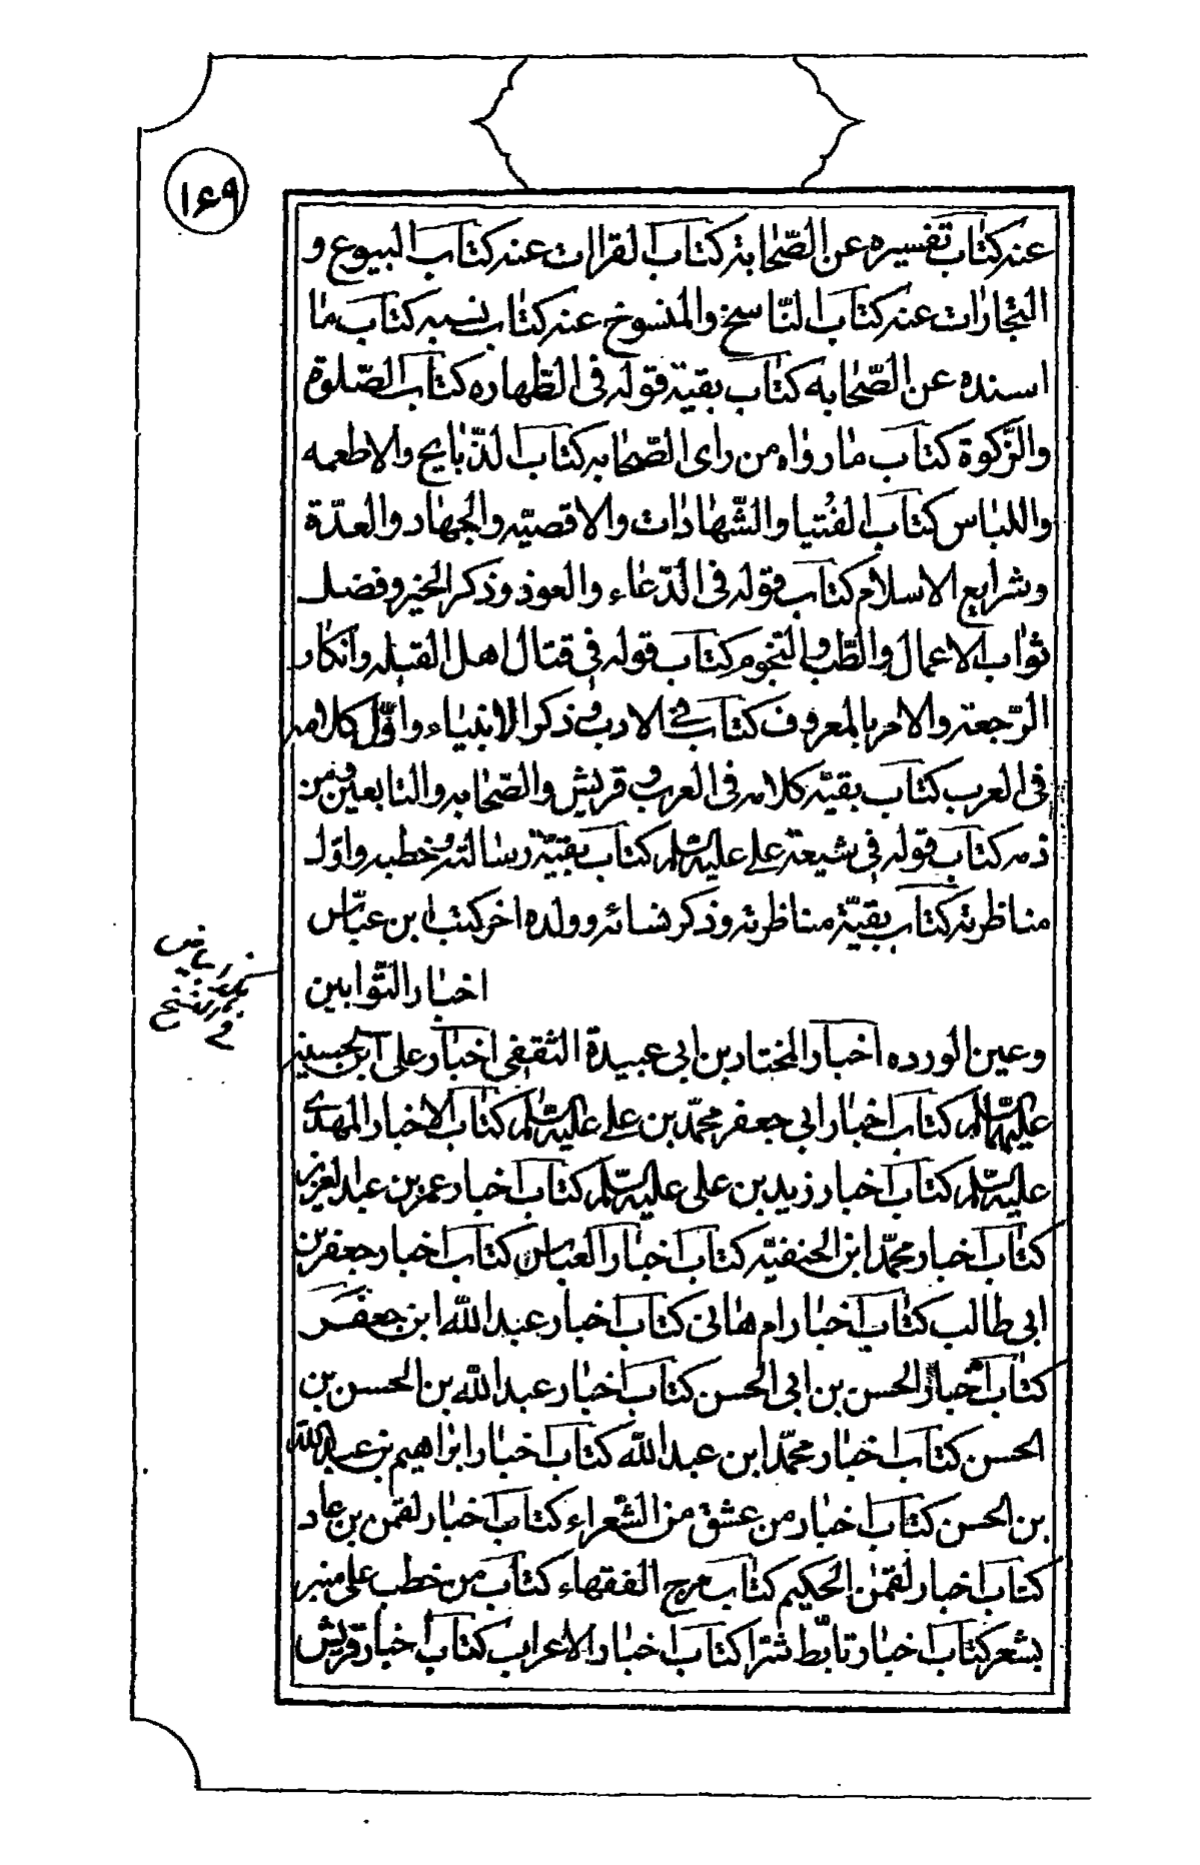 ۱۶۹
عنه كتاب تفسيره عن الصّحابة كتاب القراات عنه كتاب البيوع و
التجارات عنه كتاب النّاسخ والمنسوخ عنه كتاب نسبه كتاب ما
اسنده عن الصّحابه كتاب بقية قوله فى الطّهاره كتاب الصّلوة
والزّكوة كتاب ما رواه من راى الصّحابه كتاب الذّبايح والاطعمه
واللباس كتاب الفُتيا والشّهادات والاقضيه والجهاد والعدّة
وشرايع الاسلام كتاب قوله فى الدّعاء والعوذ وذكر الخير وفضل
ثواب الاعمال والطّب والنجوم كتاب قوله فى قتال اهل القبله وانكار
الرّجعة والامر بالمعروف كتاب فى الادب وذكر الانبياء واوّل كلامه
فى العرب كتاب بقيّة كلامه فى العرب وقريش والصّحابه والتابعين ومن
ذمه كتاب قوله فى شيعة على عليه السّلم كتاب بقيّة رسائله وخطبه واوّل
مناظرته كتاب بقيّة مناظرته وذكر نسائه وولده اخر كتب ابن عبّاس
اخبار التّوابين
وعين الورده اخبار المختار بن ابى عبيدة الثقفى اخبار على ابن الحسين
عليهما السّلم كتاب اخبار ابى جعفر محمّد بن على عليه السّلم كتاب الاخبار المهدى
عليه السّلم كتاب اخبار زيد بن على عليه السّلم كتاب اخبار عمر بن عبد العزيز
كتاب اخبار محمّد ابن الحنفيّه كتاب اخبار العباس كتاب اخبار جعفر بن
ابى طالب كتاب اخبار ام هانى كتاب اخبار عبد اللّه ابن جعفر
كتاب اخبار الحسن بن ابى الحسن كتاب اخبار عبد اللّه بن الحسن بن
الحسن كتاب اخبار محمّد ابن عبد اللّه كتاب اخبار ابراهيم بن عبد اللّه
بن الحسن كتاب اخبار من عشق من الشّعراء كتاب اخبار لقمن بن عاد
كتاب اخبار لقمن الحكيم كتاب مرج الفقهاء كتاب من خطب على منبر
بشعر كتاب اخبار تابّط شرّا كتاب اخبار الاعراب كتاب اخبار قريش